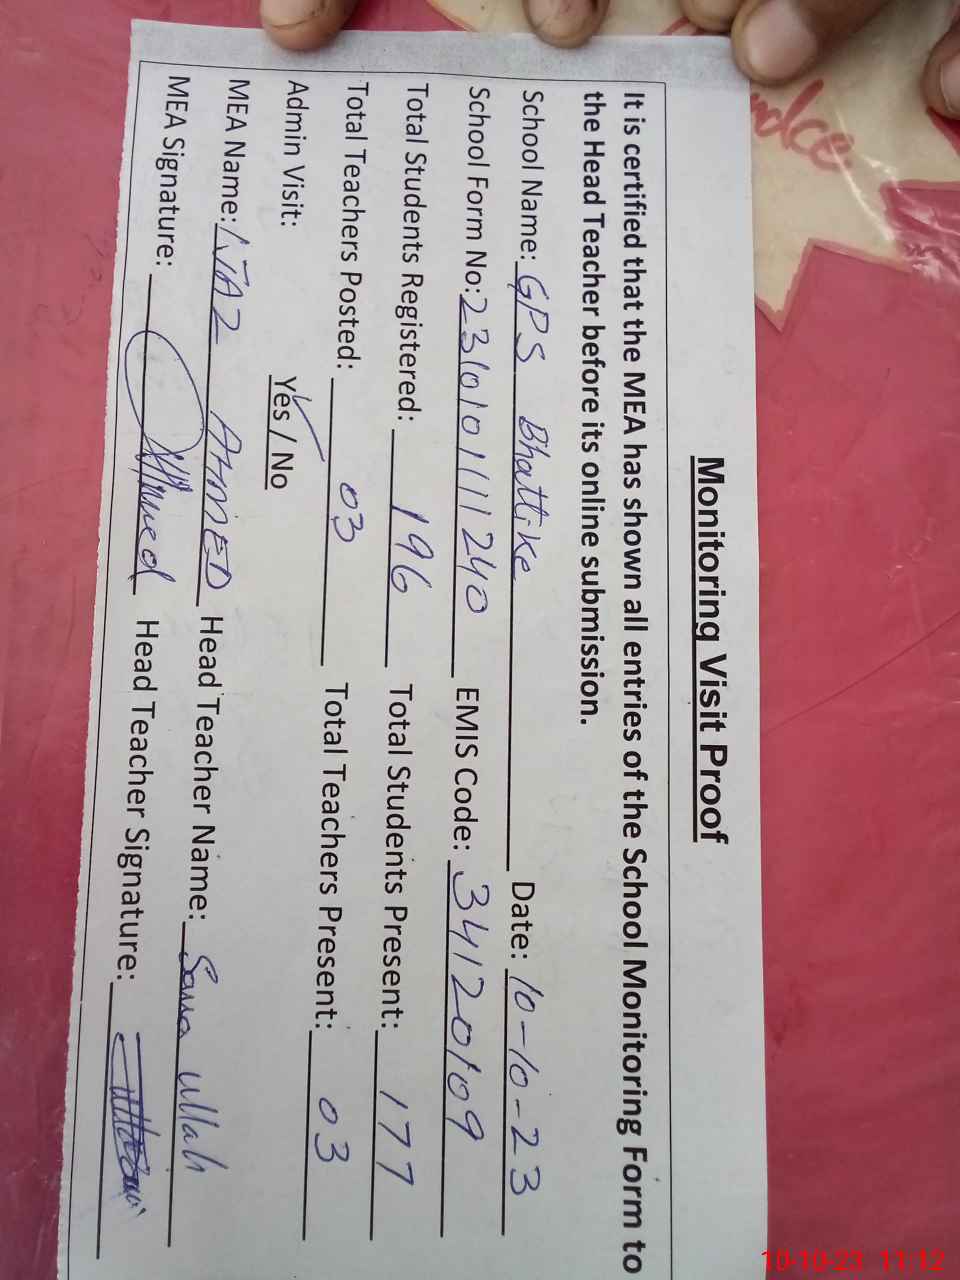 Monitoring Visit Proof
It is certified that the MEA has shown all entries of the School Monitoring Form to
the Head Teacher before its online submission.
School Name: GPS Bhattike Date: 10-10-23
School Form No: 2310101111240 EMIS Code: 34120109
Total Students Registered: 196 Total Students Present: 177
Total Teachers Posted: 03 Total Teachers Present: 03
Admin Visit: Yes / No
MEA Name: NIAZ AHMED Head Teacher Name: Sana ullah
MEA Signature: Head Teacher Signature:
10-10-23 11:12